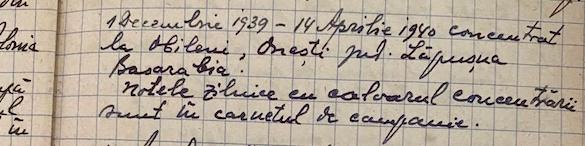 1 Decembrie 1939 – 14 Aprilie 1940 concentrat
la Obileni, Onești jud. Lăpușna
Basarabia.
Notele zilnice cu calvarul concentrării
sunt în carnetul de campanie.
în